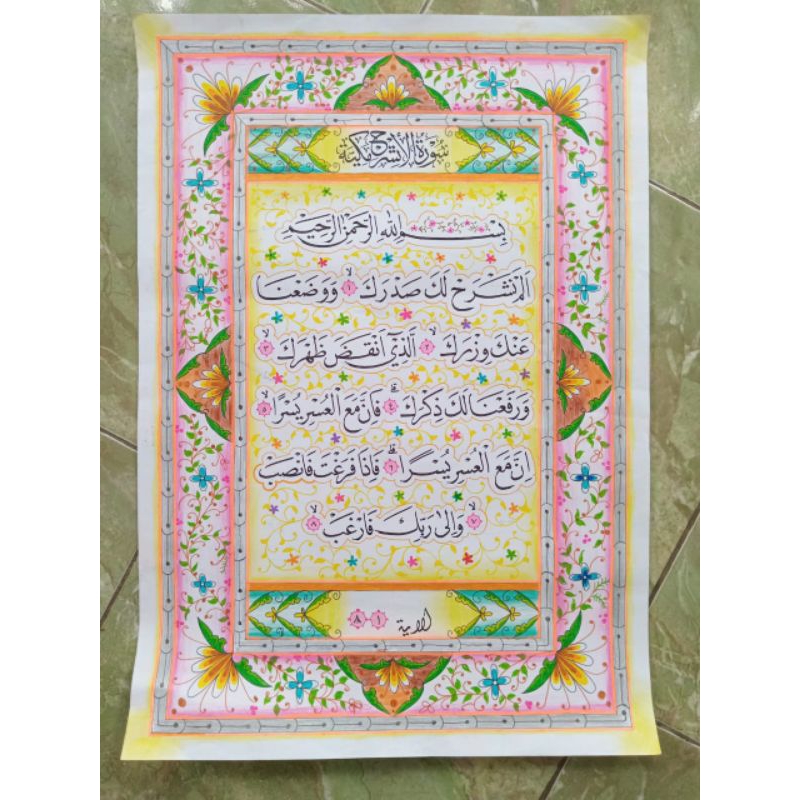 سُوْرَةُ الْأِنْشِرَاحِ مَكِّيَّة
بِسْمِ اللهِ الرَّحْمٰنِ الرَّحِيْمِ
اَلَمْ نَشْرَحْ لَكَ صَدْرَكَ ۙ ١ وَوَضَعْنَا
عَنْكَ وِزْرَكَ ۙ ٢ الَّذِيْٓ اَنْقَضَ ظَهْرَكَ ۙ ٣
وَرَفَعْنَا لَكَ ذِكْرَكَ ۗ ٤ فَاِنَّ مَعَ الْعُسْرِ يُسْرًا ۙ ٥
اِنَّ مَعَ الْعُسْرِ يُسْرًا ۗ ٦ فَاِذَا فَرَغْتَ فَانْصَبْ
ۙ ٧ وَاِلٰى رَبِّكَ فَارْغَبْ ۙ ٨
الاية ١-٨